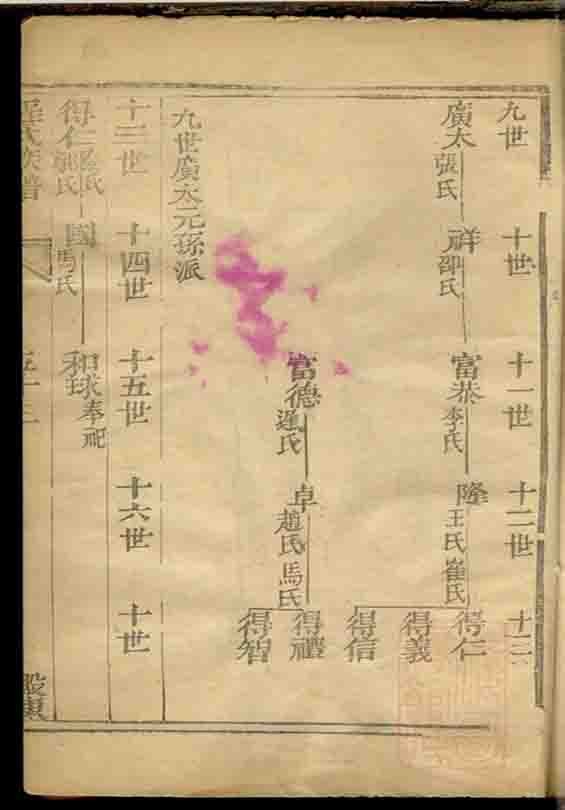 九世 十世 十一世 十二世 十三
廣太 張氏
祥 邵氏
富恭 李氏
隆 王氏 崔氏
得仁
得義
得信
富德
卓 趙氏 馬氏
得禮
得智
九世廣太元孫派
十三世 十四世 十五世 十六世 十世
得仁
國 馬氏
和球 奉祀
氏族譜
股東